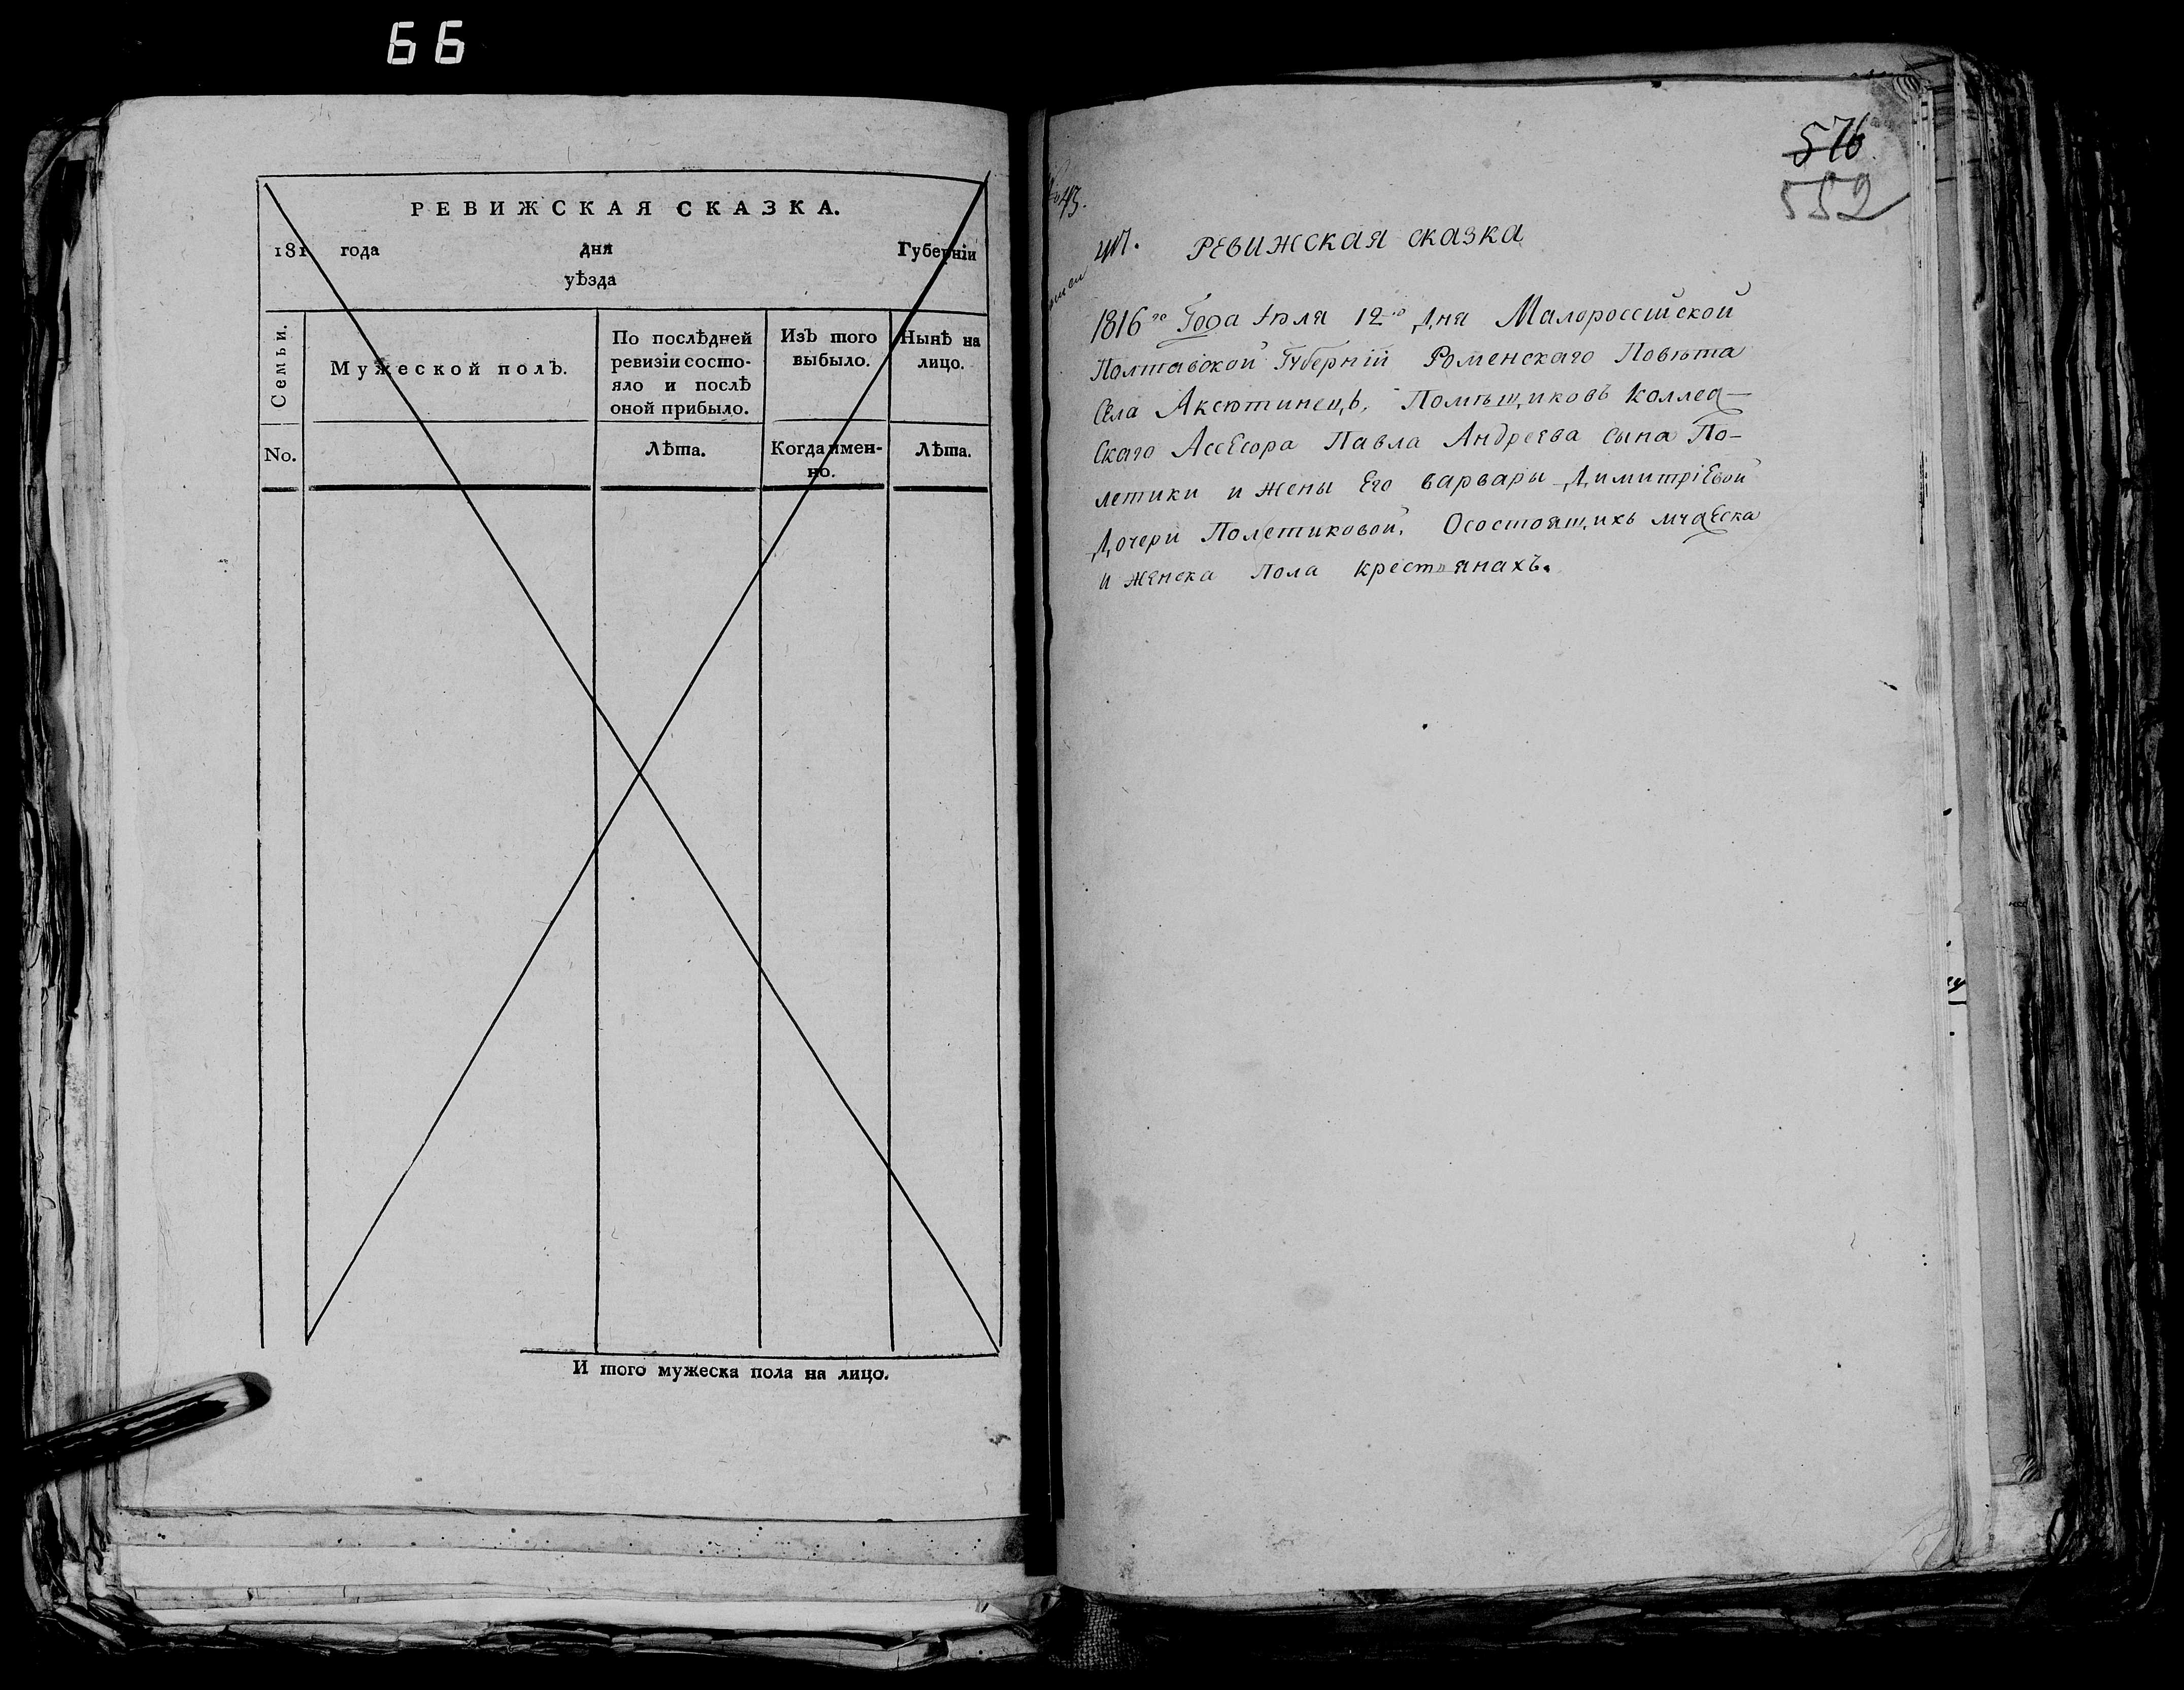 66
РЕВИЖСКАЯ СКАЗКА.
181 года дня Губерніи
уѣзда
Семьи.
Мужеской полъ.
По послѣдней
ревизіи состо-
яло и послѣ
оной прибыло.
Изъ того
выбыло.
Нынѣ на
лицо.
No.
Лѣта.
Когда имен-
но.
Лѣта.
И того мужеска пола на лицо.
576
552
РЕВИЖСКАЯ СКАЗКА
1816го Года Іюля 12го Дня Малороссійской
Полтавской Губерній Роменскаго Повѣта
Села Аксютинецъ, Помѣщиковъ Коллеж-
Скаго Ассесора Павла Андреева Сына По-
летики и жены Его варвары Димитріевой
Дочери Полетиковой, Осостоящихъ мужеска
и женска Пола крестьянахъ.